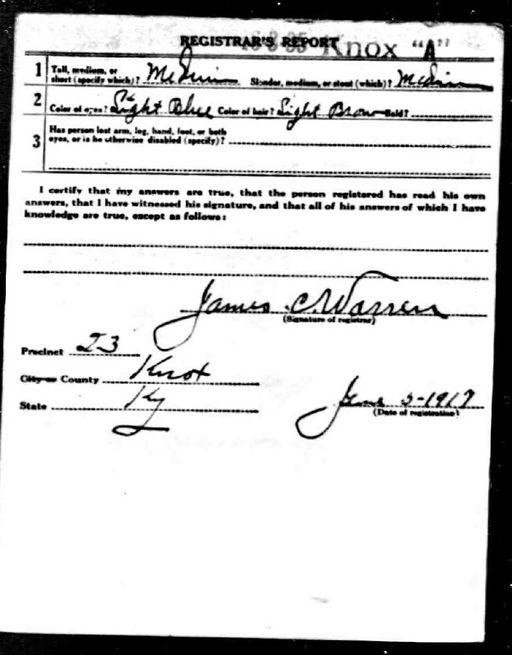 REGISTRAR'S REPORT Knox "A"
1 Tall, medium, or short (specify which)? Medium Slender, medium, or stout (which)? Medium
2 Color of eyes? Light Blue Color of hair? Light Brown Bald?
3 Has person lost arm, leg, hand, foot, or both
eyes, or is he otherwise disabled (specify)?
I certify that my answers are true, that the person registered has read his own
answers, that I have witnessed his signature, and that all of his answers of which I have
knowledge are true, except as follows:
James C. Warren
(Signature of registrar)
Precinct 23
City or County Knox
State Ky
June 5-1917
(Date of registration)